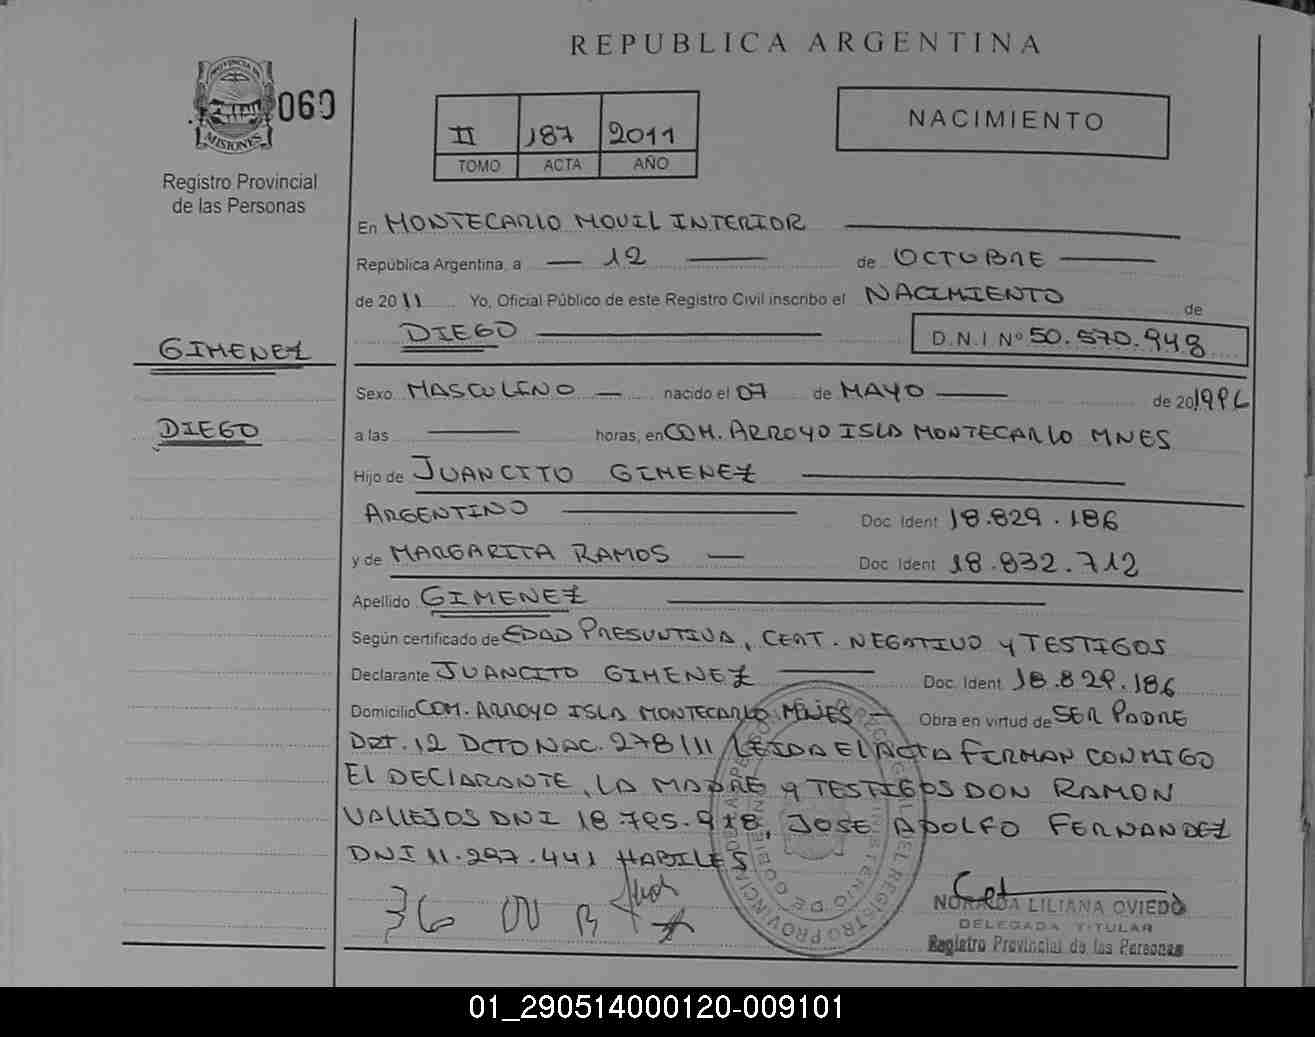 REPUBLICA ARGENTINA
PROVINCIA DE MISIONES
060
Registro Provincial
de las Personas
II 187 2011
TOMO ACTA AÑO
NACIMIENTO
En MONTECARLO MOVIL INTERIOR
República Argentina, a 12 de OCTUBRE
de 2011 Yo, Oficial Público de este Registro Civil inscribo el NACIMIENTO de
DIEGO D.N.I Nº 50.570.948
GIMENEZ
DIEGO
Sexo MASCULINO nacido el 07 de MAYO de 20 1996
a las horas, en COM. ARROYO ISLA MONTECARLO MNES
Hijo de JUANCITO GIMENEZ
ARGENTINO Doc. Ident 18.829.186
y de MARGARITA RAMOS Doc. Ident 18.832.712
Apellido GIMENEZ
Según certificado de EDAD PRESUNTIVA, CERT. NEGATIVO y TESTIGOS
Declarante JUANCITO GIMENEZ Doc. Ident. 18.829.186
Domicilio COM. ARROYO ISLA MONTECARLO MNES Obra en virtud de SER PADRE
DRT. 12 DCTO NAC. 278/11 LEIDA El ACTA FIRMAN CONMIGO
El DECLARANTE, LA MADRE y TESTIGOS DON RAMON
VALLEJOS DNI 18.795.918, JOSE ADOLFO FERNANDEZ
DNI 11.297.441 HABILES
NORALDA LILIANA OVIEDO
DELEGADA TITULAR
Registro Provincial de las Personas
01_290514000120-009101